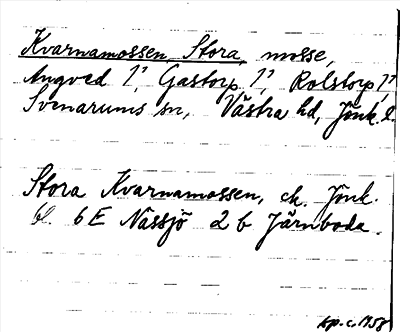 Kvarnamossen, Stora, mosse,
Angved 1², Gastorp 1², Rolstorp 1²
Svenarums sn, Västra hd, Jönk. l.
Stora Kvarnamossen, ek. Jönk.
bl. 6E Nässjö 2 b Järnboda.
tp. c. 1958